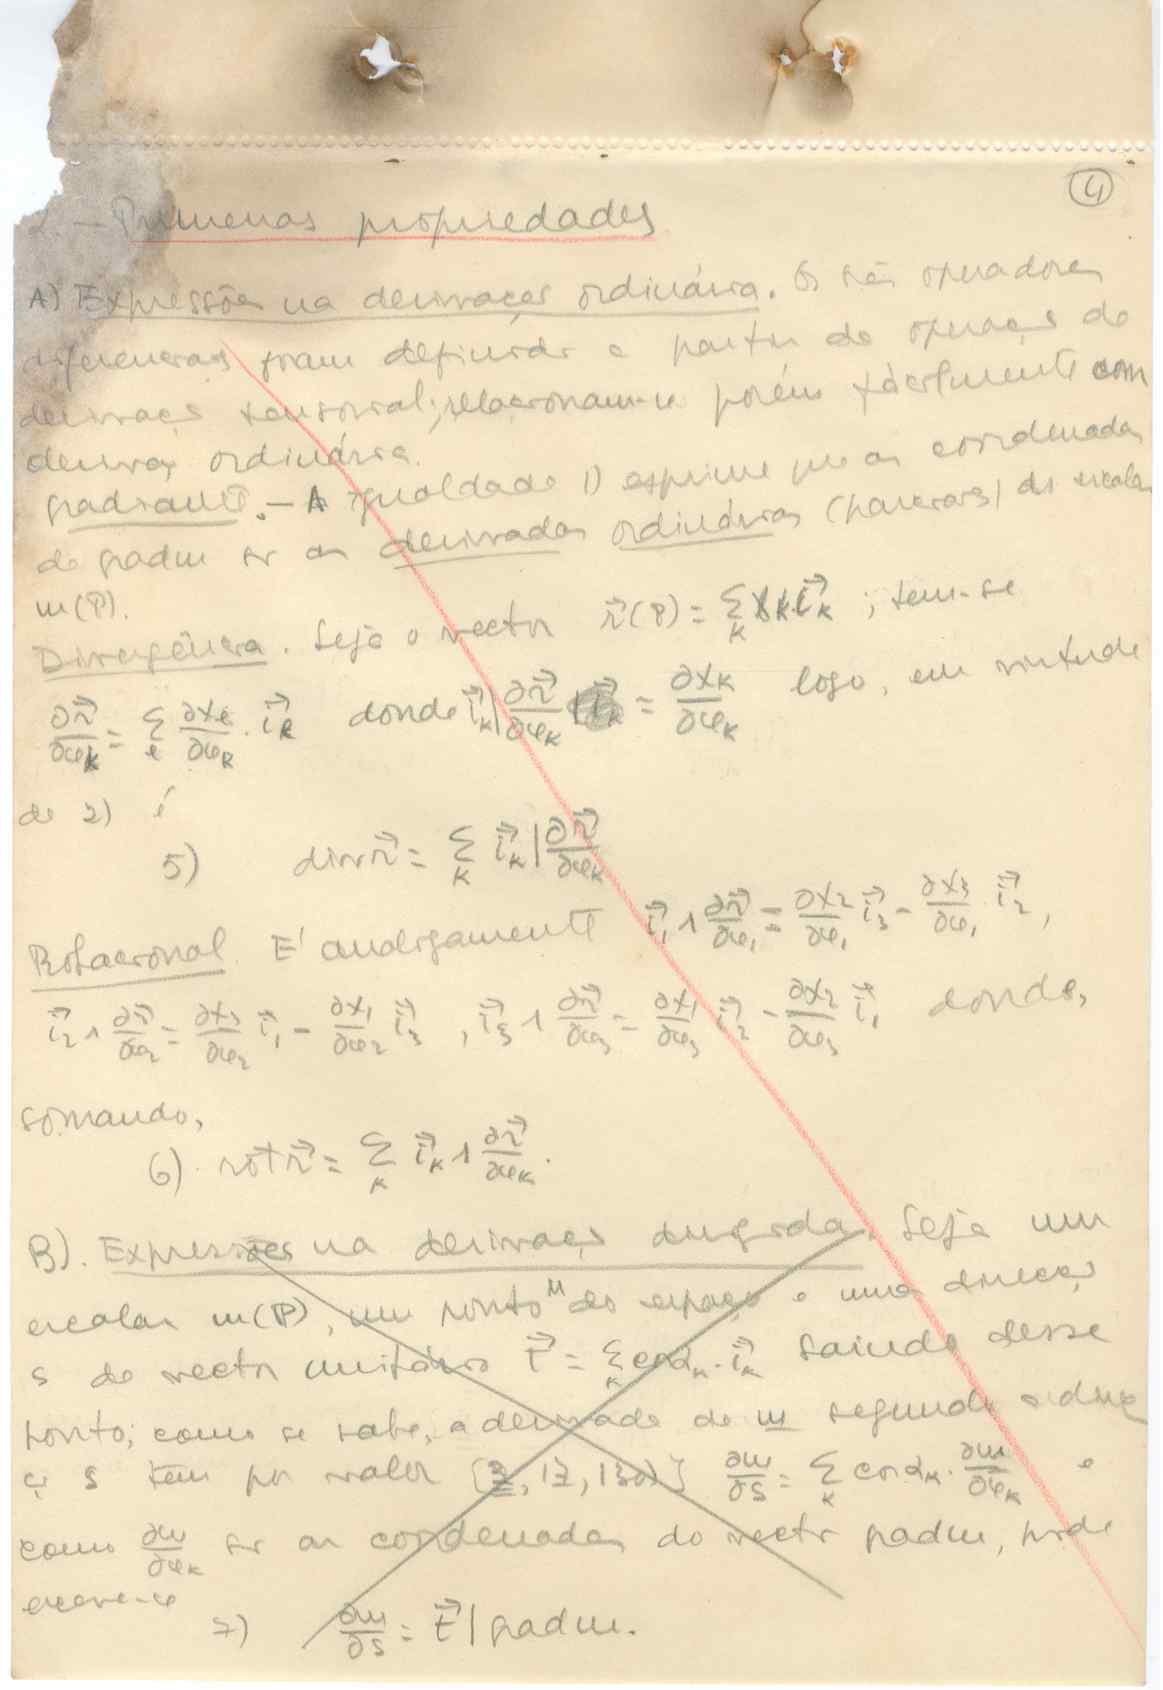 4
2. — Primeiras propriedades
A) Expressões na derivação ordinária. Os três operadores
diferenciais foram definidos a partir da operação de
derivação tensorial; relacionam-se porém facilmente com
derivação ordinária.
Gradiente. — A igualdade 1) exprime que as coordenadas
de grad m são as derivadas ordinárias (parciais) do escalar
m(P).
Divergência. Seja o vector \vec{r}(P) = \sum_k x_k \vec{i}_k ; tem-se
\frac{\partial \vec{r}}{\partial \varphi_k} = \sum_e \frac{\partial x_e}{\partial \varphi_k} . \vec{i}_e donde \vec{i}_k | \frac{\partial \vec{r}}{\partial \varphi_k} = \frac{\partial x_k}{\partial \varphi_k} logo, em virtude
de 2) é
5) div \vec{r} = \sum_k \vec{i}_k | \frac{\partial \vec{r}}{\partial \varphi_k}
Rotacional. É analogamente \vec{i}_1 ∧ \frac{\partial \vec{r}}{\partial \varphi_1} = \frac{\partial x_2}{\partial \varphi_1} \vec{i}_3 - \frac{\partial x_3}{\partial \varphi_1} . \vec{i}_2 ,
\vec{i}_2 ∧ \frac{\partial \vec{r}}{\partial \varphi_2} = \frac{\partial x_3}{\partial \varphi_2} \vec{i}_1 - \frac{\partial x_1}{\partial \varphi_2} \vec{i}_3 , \vec{i}_3 ∧ \frac{\partial \vec{r}}{\partial \varphi_3} = \frac{\partial x_1}{\partial \varphi_3} \vec{i}_2 - \frac{\partial x_2}{\partial \varphi_3} \vec{i}_1 donde,
somando,
6). rot \vec{r} = \sum_k \vec{i}_k ∧ \frac{\partial \vec{r}}{\partial \varphi_k} .
B). Expressões na derivação dirigida. Seja um
escalar m(P), um ponto M do espaço e uma direcção
s de vector unitário \vec{t} = \sum_k cos α_k . \vec{i}_k saindo desse
ponto; como se sabe, a derivada de m segundo a direc
ção s tem por valor [3, 17, 130)] \frac{\partial m}{\partial s} = \sum_k cos α_k . \frac{\partial m}{\partial \varphi_k} e
como \frac{\partial m}{\partial \varphi_k} são as coordenadas do vector grad m, pode
escrever-se
7) \frac{\partial m}{\partial s} = \vec{t} | grad m.